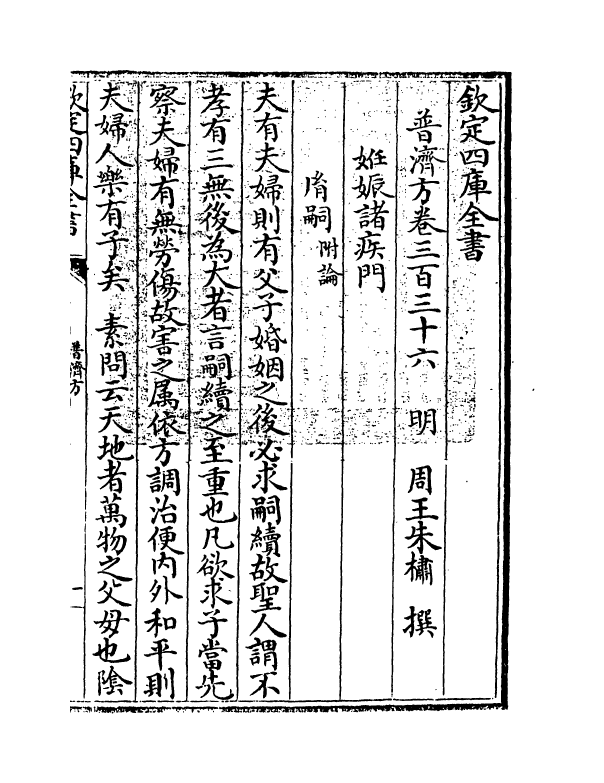 欽定四庫全書
普濟方卷三百三十六　明　周王朱橚　撰
妊娠諸疾門
㣧嗣附論
夫有夫婦則有父子婚姻之後必求嗣續故聖人謂不
孝有三無後為大者言嗣續之至重也凡欲求子當先
察夫婦有無勞傷故害之属依方調治便内外和平則
夫婦人樂有子矣　素問云天地者萬物之父母也陰
欽定四庫全書
普濟方
一